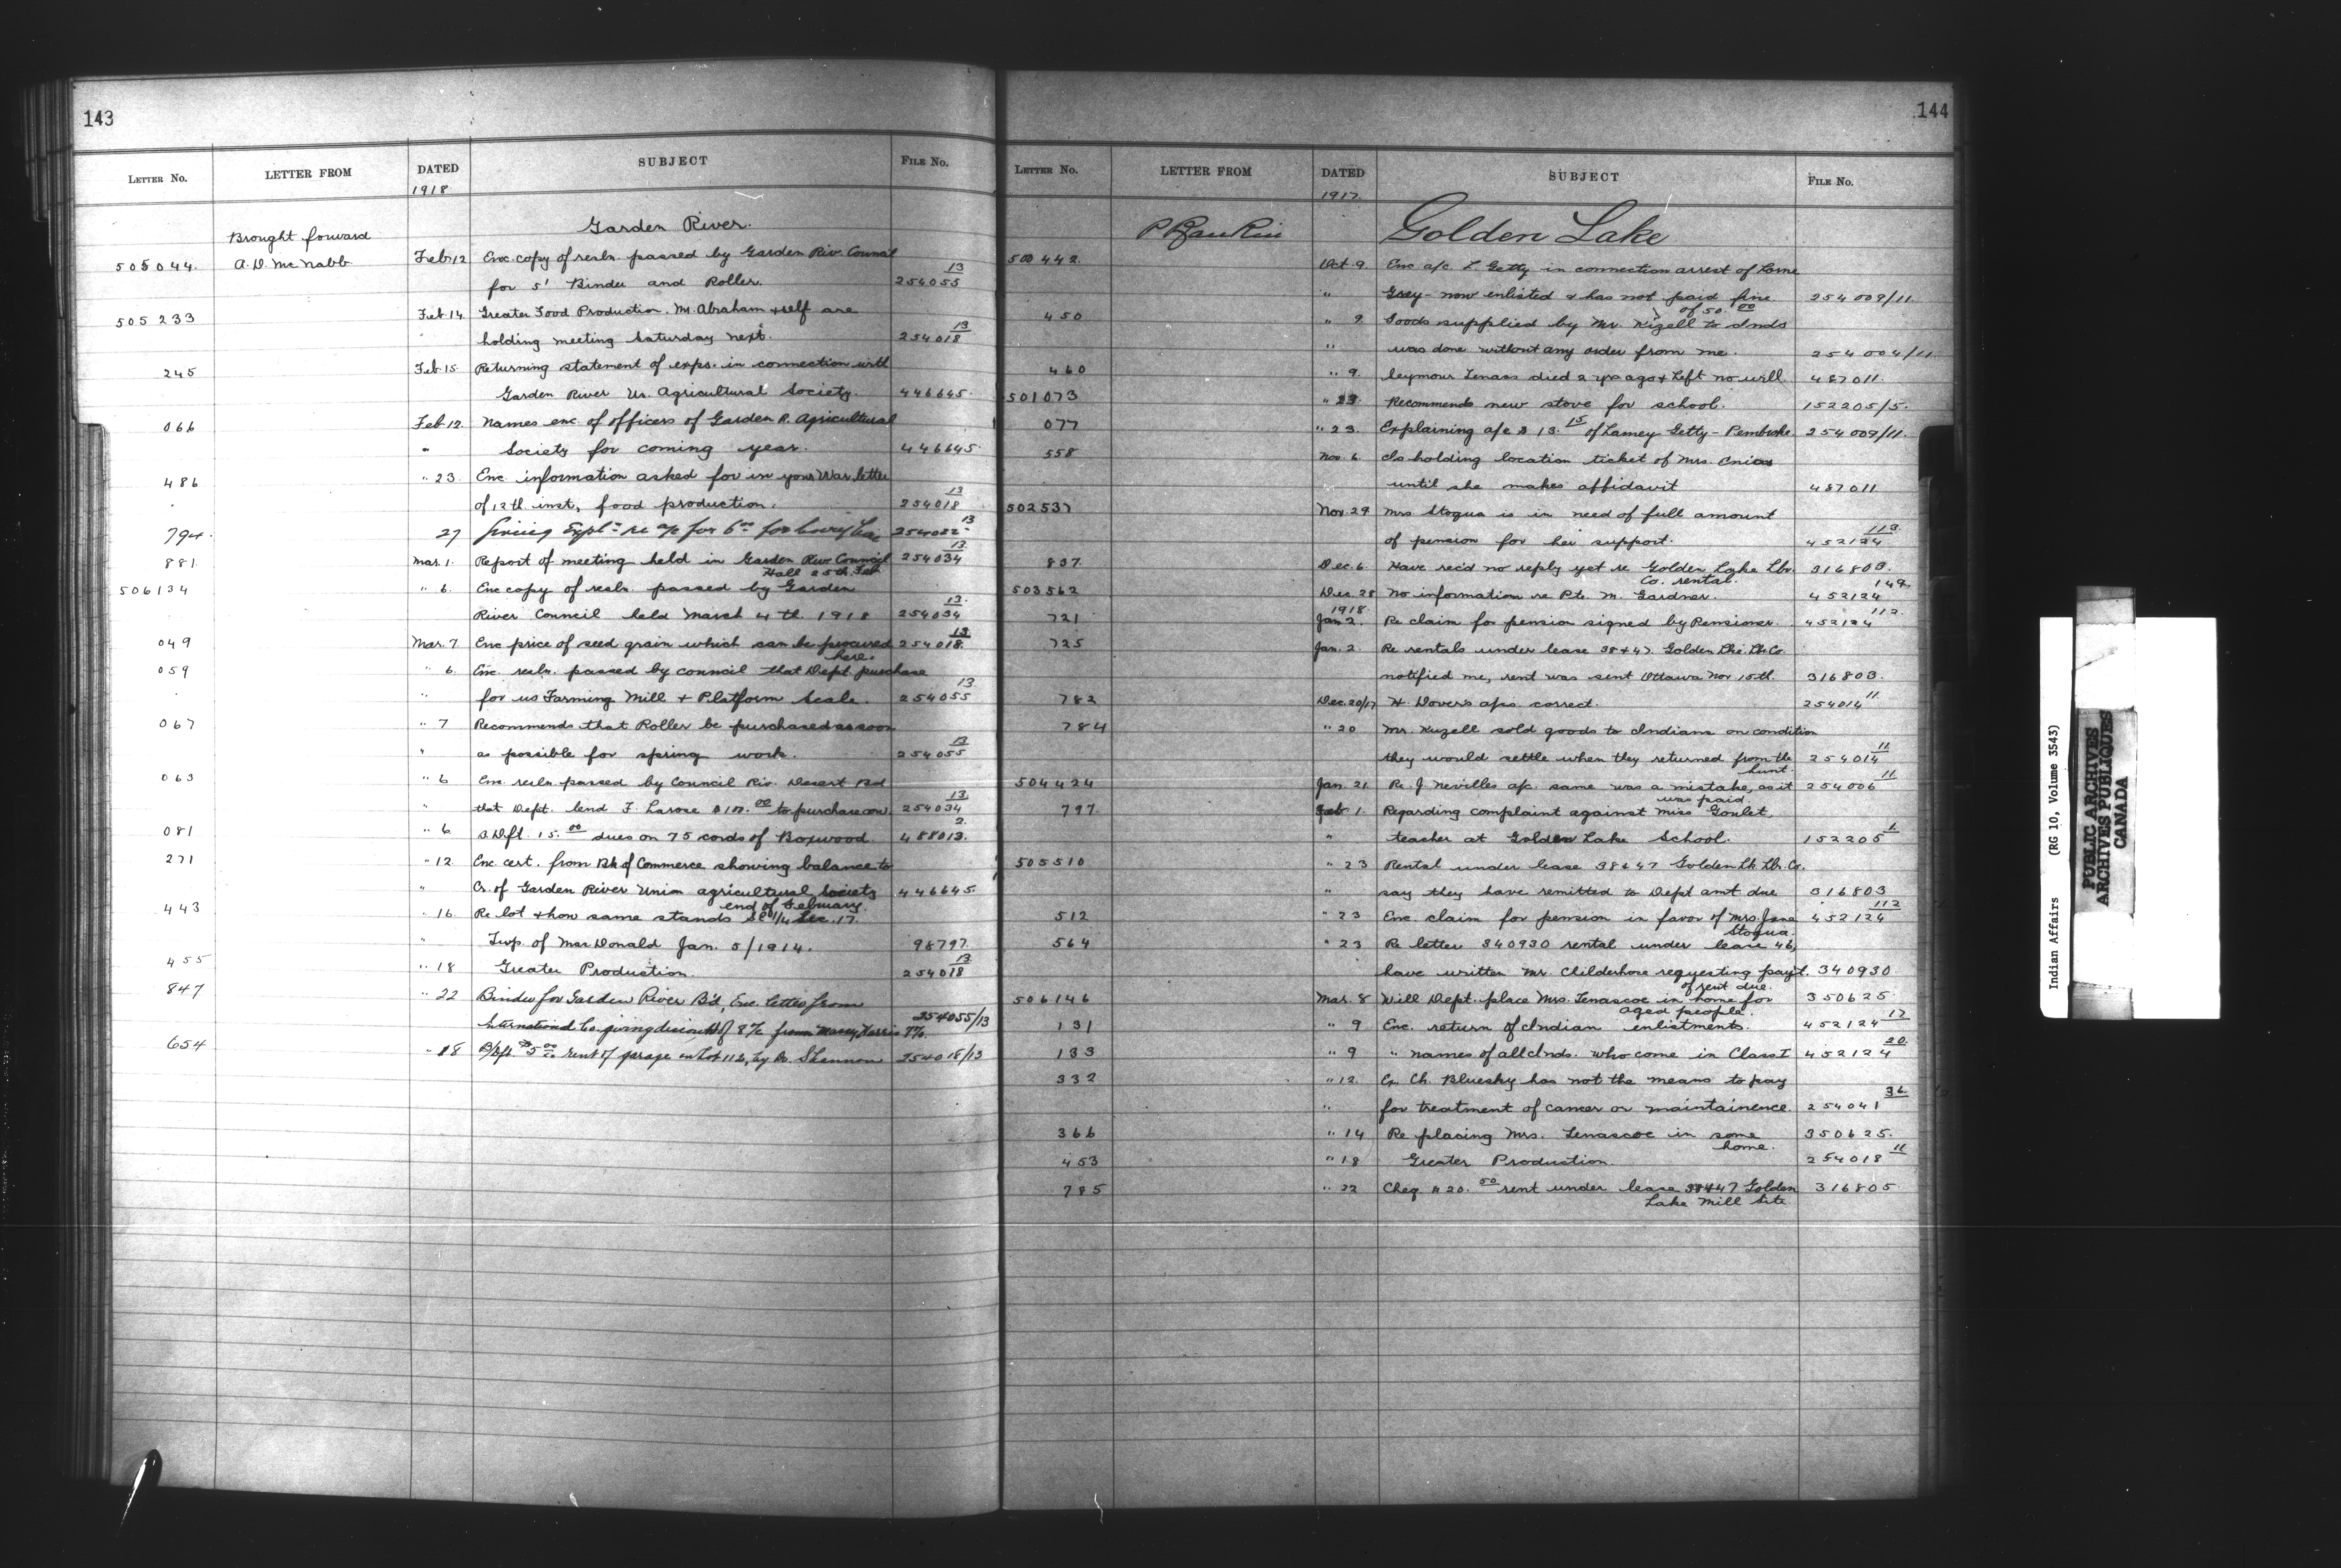 143
LETTER No. LETTER FROM DATED SUBJECT FILE No.
1918
Brought forward Garden River.
505044. A.D. McNabb Feb 12 Enc. copy of resln. passed by Garden Riv. Council
for 5' Binder and Roller. 254055 13
505233 Feb 14 Greater Food Production. Mr. Abraham & self are
holding meeting Saturday next. 254018 13
245 Feb 15 Returning statement of exps. in connection with
Garden River Un. Agricultural Society. 446645.
066 Feb 12. Names enc. of officers of Garden R. Agricultural
" Society for coming year. 446645.
486 " 23. Enc. information asked for in your War letter
of 12th inst, food production. 254018 13
794. 27 Giving Expl'n re a/c for 6.00 for 254022 13
881. Mar. 1. Report of meeting held in Garden Riv. Council 254034 13
Hall 25th Feb
506134 " 6. Enc copy of resln. passed by Garden
River Council held March 4th. 1918 254034 13
049 Mar. 7 Enc price of seed grain which can be procured 254018 13
here.
059 " 6. Enc. resln. passed by council that Dept. purchase
" for us Fanning Mill + Platform Scale. 254055 13
067 " 7 Recommends that Roller be purchased as soon
" as possible for spring work. 254055 13
063 " 6 Enc. resln. passed by Council Riv. Desert Bd
" that Dept. lend F. Larose to purchase 254034 13
081 " 6 D. Dft. 15.00 dues on 75 cords of Boxwood. 488013. 2.
271 " 12. Enc. cert. from Bk of Commerce showing balance to
" Cr. of Garden River Union agricultural society 446645.
end of February.
443 " 16. Re lot & how same stands SE 1/4 Sec. 17.
" Twp. of MacDonald Jan. 5/1914. 98797.
455 " 18 Greater Production. 254018 13
847 " 22 Binder for Garden River B'd, Enc. letter from
International Co. giving discount of 8% from Massey Harris 7%. 254055/13
654 " 28 D/Dft $5.00 rent of garage on Lot 112, by Dr. Shannon 254018/13
144
LETTER No. LETTER FROM DATED SUBJECT FILE No.
1917.
P Rankin Golden Lake
500442. Oct 9. Enc a/c L. Getty in connection arrest of Lorne
" Grey - now enlisted & has not paid fine 254009/11.
of 50.00
450 " 9 Goods supplied by Mr. Kizell to Inds
" was done without any order from me. 254004/11
460 " 9. Seymour Tenass died 2 yrs ago & left no will. 487011.
501073 " 23. Recommends new stove for school. 152205/5.
077 " 23. Explaining a/c $ 13.15 of Lamey Getty - Pembroke 254009/11.
558 Nov. 6. Is holding location ticket of Mrs.
until she makes affidavit 487011
502537 Nov. 29 Mrs Stogua is in need of full amount
of pension for her support. 452124 112.
837. Dec. 6. Have rec'd no reply yet re Golden Lake Lbr. 316803.
Co. rental.
503562 Dec. 28 No information re Pte. M. Gardner. 452124 149.
1918.
721 Jan 2. Re claim for pension signed by Pensioner. 452124 112.
725 Jan. 2. Re rentals under lease 38 & 47. Golden Lke. Lb. Co.
notified me, rent was sent Ottawa Nov 15th. 316803.
782 Dec. 20/17 H. Dover's a/cs. correct. 254014 11
784 " 20 Mr. Kuzell sold goods to Indians on condition
they would settle when they returned from the 254014 11
hunt.
504424 Jan. 21 Re. J. Nevilles a/c. same was a mistake, as it 254006 11
was paid.
797. Feb 1. Regarding complaint against Miss Goulet,
" teacher at Golden Lake School. 152205 1.
505510 " 23 Rental under lease 38 & 47 Golden Lk. Lbr. Co.
" say they have remitted to Dept amt due 316803
512 " 23 Enc. claim for pension in favor of Mrs. Jane 452124 112
Stogua.
564 " 23 Re letter 340930 rental under lease 46,
have written Mr. Childerhose requesting paym't. 340930
of rent due.
506146 Mar. 8 Will Dept. place Mrs. Tenascoe in home for 350625
aged people.
131 " 9 Enc. return of Indian enlistments. 452124 17
133 " 9 " names of all Inds. who come in Class I 452124 20.
332 " 12. Ex Ch. Bluesky has not the means to pay
" for treatment of cancer or maintainence. 254041 36
366 " 14 Re placing Mrs. Tenascoe in some 350625.
home.
453 " 18 Greater Production. 254018 11
785 " 22 Cheq $ 20.00 rent under lease 38 & 47 Golden 316805
Lake Mill Site
Indian Affairs (RG 10, Volume 3543)
PUBLIC ARCHIVES
ARCHIVES PUBLIQUES
CANADA